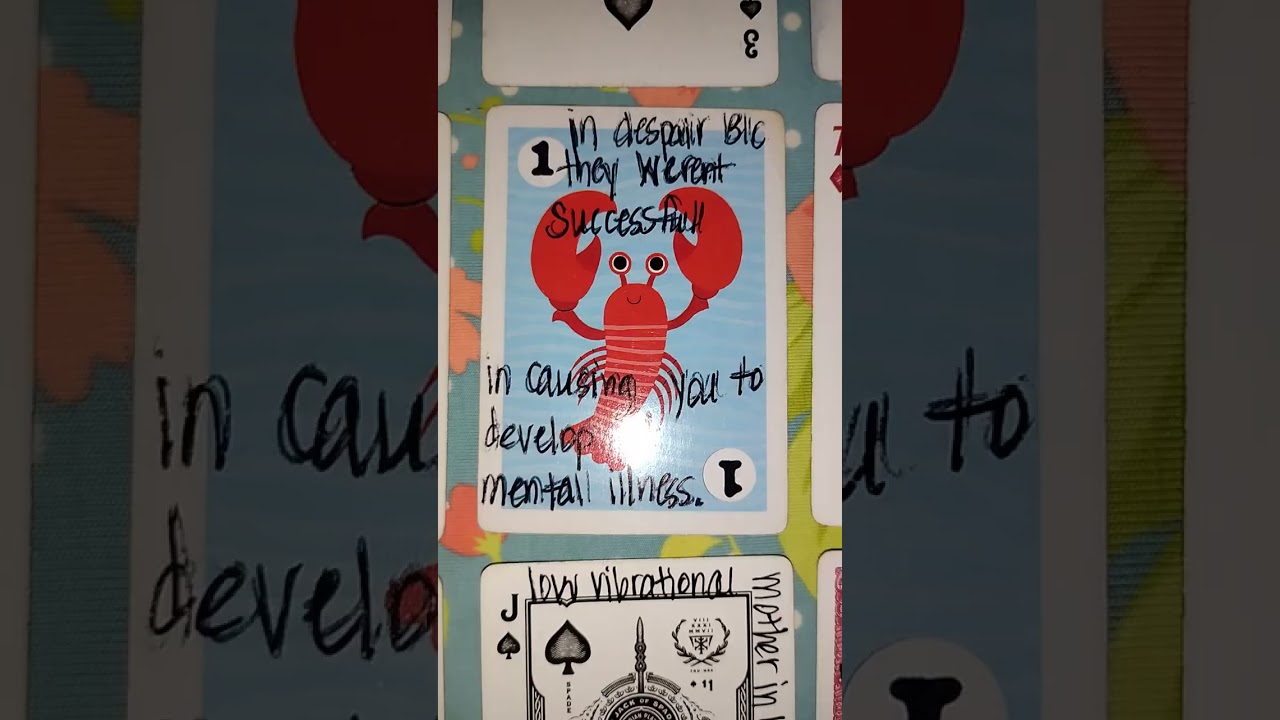 3
1
in despair B/c
they Werent
Successfull
7
in causing you to
develop
mentall illness.
1
J
low vibrational
mother in
SPADE
VIII
XXXI
MMVII
11
JACK OF SPADE
in cau
u to
develo
1